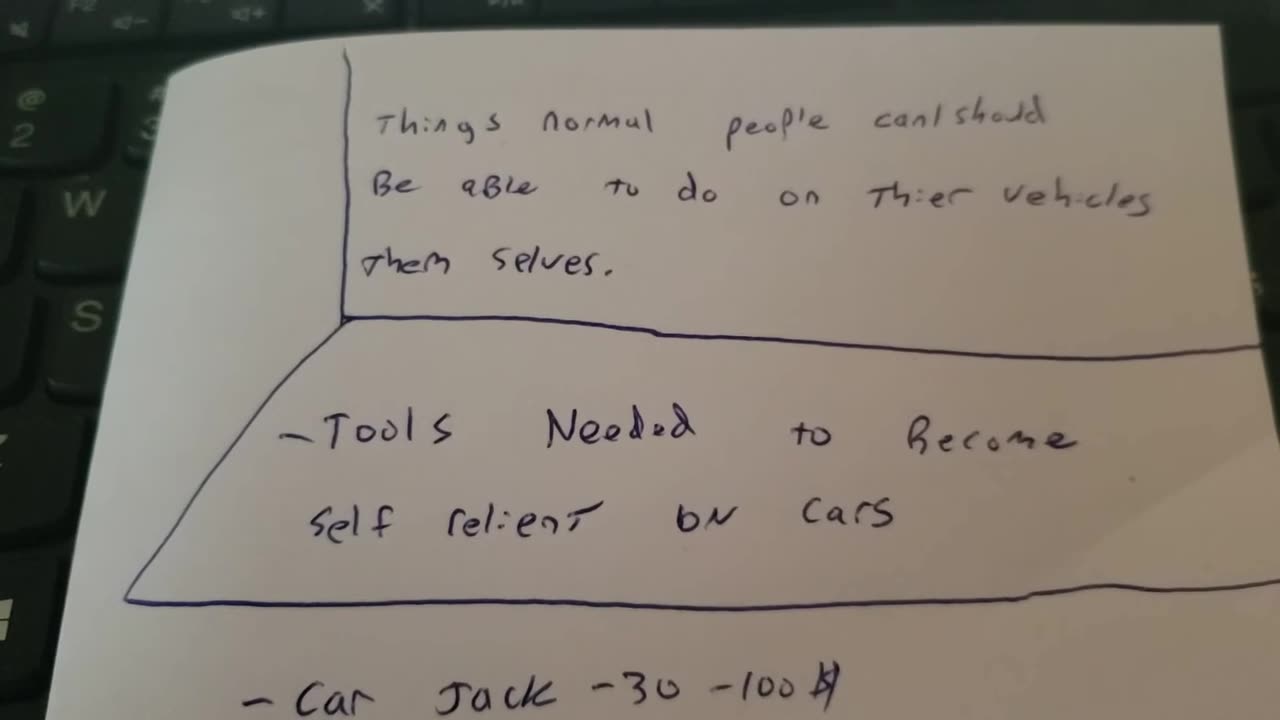 Things normal people can/should
Be able to do on Thier vehicles
Them selves.
- Tools Needed to Become
self relient on cars
- Car Jack - 30 - 100 $
@
2
W
S